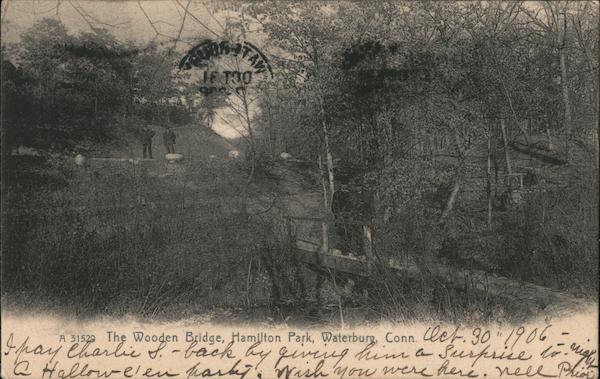 WATERBURY
OCT 31
A 31529 The Wooden Bridge, Hamilton Park, Waterbury, Conn. Oct. 30" 1906-
I pay Charlie S. - back by giving him a Surprise to-night
A Hallowe'en party. Wish you were here. Nell